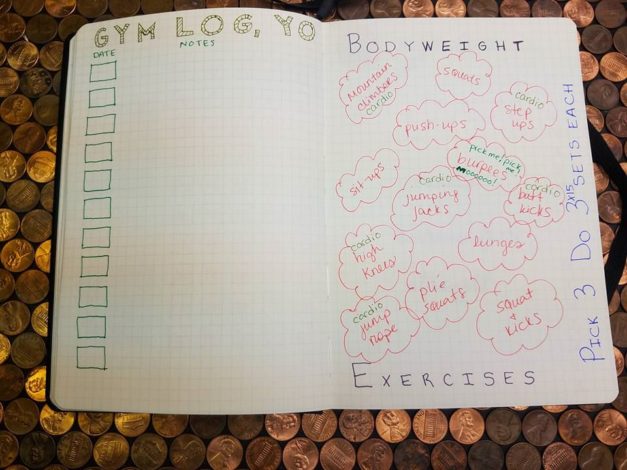 GYM LOG, YO
DATE
NOTES
BODYWEIGHT
Mountain
climbers
cardio
squats
cardio
step
ups
push-ups
pick me, pick me!
burpees
sit-ups
cardio
jumping
jacks
cardio
butt
kicks
cardio
high
knees
lunges
plie
squats
squat
+
kicks
cardio
jump
rope
EXERCISES
PICK 3 DO 3x15 SETS EACH